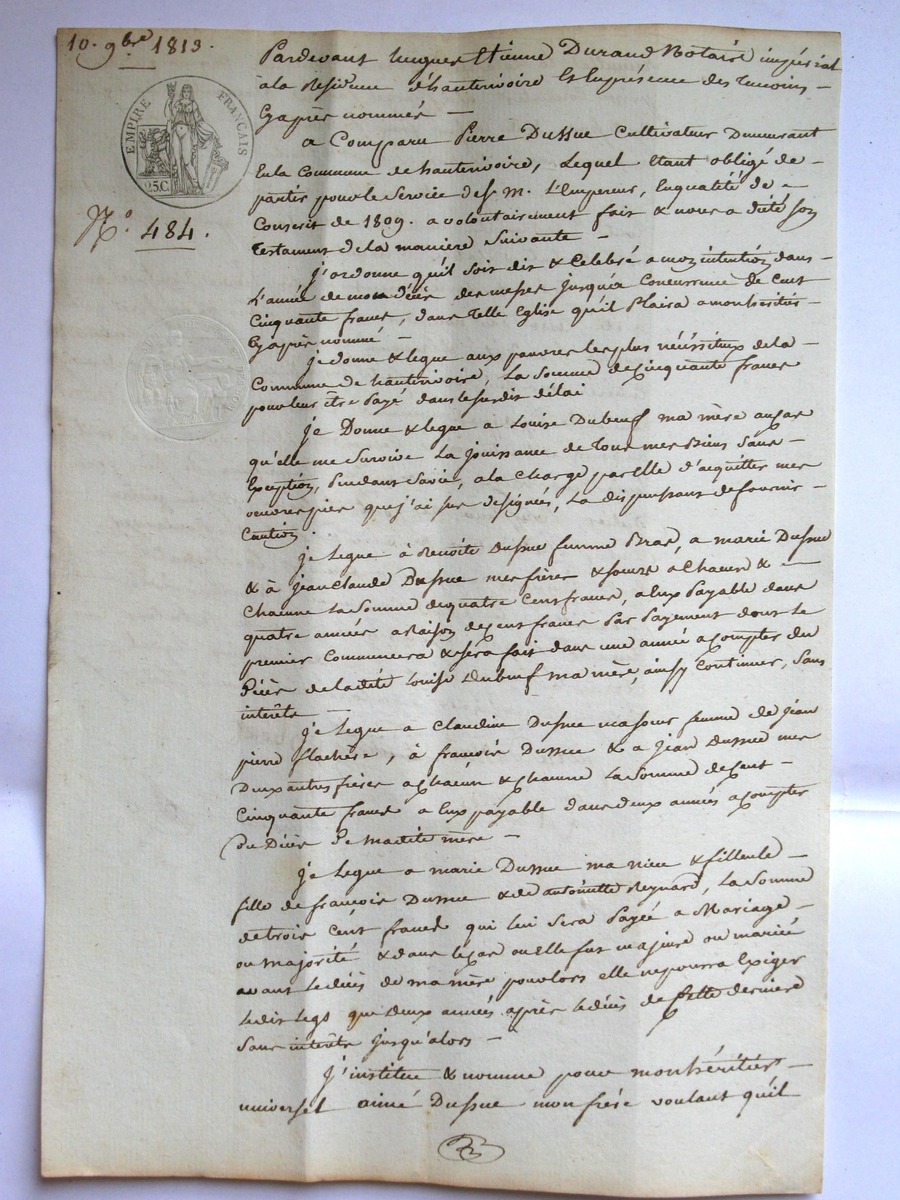 10. 9bre 1813.
EMPIRE FRANÇAIS
25.C
N.o 484.
Pardevant hugues Etienne Durand Notaire impérial
à la Residence d'hauterivoire Et Enpresence des temoins
Cyaprès nommés —
a Comparu Pierre Dussue Cultivateur Demeurant
En la Commune de hauterivoire, Lequel Etant obligé de
partir pour le Service de S. M. L'Empereur, Enqualité de
Conscrit de 1809. a volontairement fait & nous a dicté son
Testament de la maniere Suivante —
j'ordonne qu'il soit dit & Celebré a mon intention dans
L'année de mon décès des messes jusqu'a Concurrence de Cent
Cinquante francs, dans Telle Eglise qu'il Plaira a mon héritier
Cyaprès nommé —
je donne & legue aux pauvres les plus nécéssiteux de la
Commune de hauterivoire, La Somme de Cinquante francs
pour leur être Payé dans le susdit délai
je Donne & legue à Louise Dubeuf ma mère au cas
qu'elle me Survive La jouissance de Tous mes Biens Sans
Exception, Pendant Sa vie, a la Charge par Elle d'acquitter mes
oeuvres pies que j'ai sus designées, La dispensant de fournir
Caution.
je Legue à Benoite Dussue femme Bras, a marie Dussue
& à jean Claude Dussue mes frères & soeurs a Chacun &
Chacune La Somme de quatre Cent francs, a Eux Payable dans
quatre années a Raison de Cent francs Par Payement dont Le
premier Commencera & sera fait dans une année a Compter du
Décès de la dite Louise Dubeuf ma mère, ainsy Continuer, Sans
interêts —
je Legue a Claudine Dussue ma soeur femme de jean
pierre flachère, à françois Dussue & a jean Dussue mes
Deux autres frères a Chacun & Chacune La Somme de Cent
Cinquante francs a Eux payable dans deux années a Compter
du Décès De ma dite mère —
je Legue a marie Dussue ma niece & filleule
fille de françois Dussue & de antoinette Reynard, La Somme
de trois Cent francs qui lui Sera Payée a Mariage
ou majorité & dans le Cas ou elle fut majeure ou mariée
avant le décès de ma mère pour lors elle ne pourra Exiger
Le dit Legs que Deux années après le décès de cette derniere
Sans interêts jusqu'alors —
j'institue & nomme pour mon héritier
universel aimé Dussue mon frère voulant qu'il